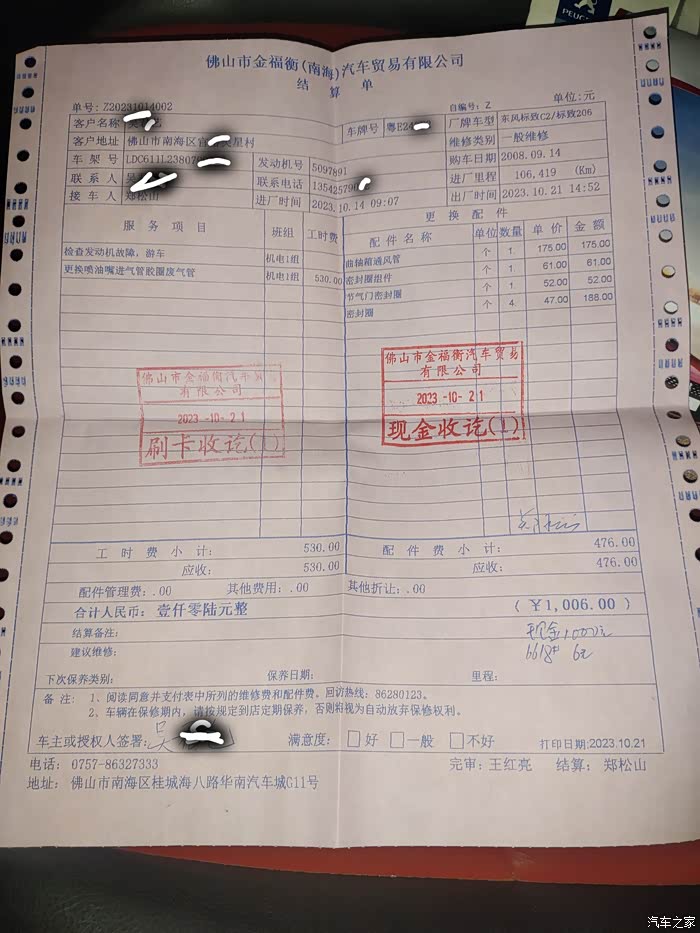 PEUGE
佛山市金福衡(南海)汽车贸易有限公司
结 算 单
单号: Z20231014002 自编号: Z 单位:元
客户名称 车牌号 粤E24 厂牌车型 东风标致C2/标致206
客户地址 佛山市南海区官 星村 维修类别 一般维修
车架号 LDC611L23807 发动机号 5097891 购车日期 2008.09.14
联系人 吴 联系电话 135425790 进厂里程 106,419 (Km)
接车人 郑松山 进厂时间 2023.10.14 09:07 出厂时间 2023.10.21 14:52
服务项目 班组 工时费 更换配件
配件名称 单位 数量 单价 金额
检查发动机故障, 游车 机电1组 曲轴箱通风管 个 1. 175.00 175.00
更换喷油嘴进气管胶圈废气管 机电1组 530.00 密封圈组件 个 1. 61.00 61.00
节气门密封圈 个 1. 52.00 52.00
密封圈 个 4. 47.00 188.00
佛山市金福衡汽车贸易有限公司
2023-10-21
刷卡收讫(1)
佛山市金福衡汽车贸易
有限公司
2023-10-21
现金收讫(1)
工时费小计: 530.00 配件费小计: 476.00
应收: 530.00 应收: 476.00
配件管理费: .00 其他费用: .00 其他折让: .00
合计人民币: 壹仟零陆元整 (￥1,006.00)
结算备注: 现金1000元
建议维修: 6618# 6元
下次保养类别: 保养日期: 里程:
备 注: 1、阅读同意并支付表中所列的维修费和配件费。回访热线: 86280123。
2、车辆在保修期内, 请按规定到店定期保养, 否则将视为自动放弃保修权利。
车主或授权人签署: 吴 满意度: □好 □一般 □不好 打印日期:2023.10.21
电话: 0757-86327333 完审: 王红亮 结算: 郑松山
地址: 佛山市南海区桂城海八路华南汽车城G11号
汽车之家